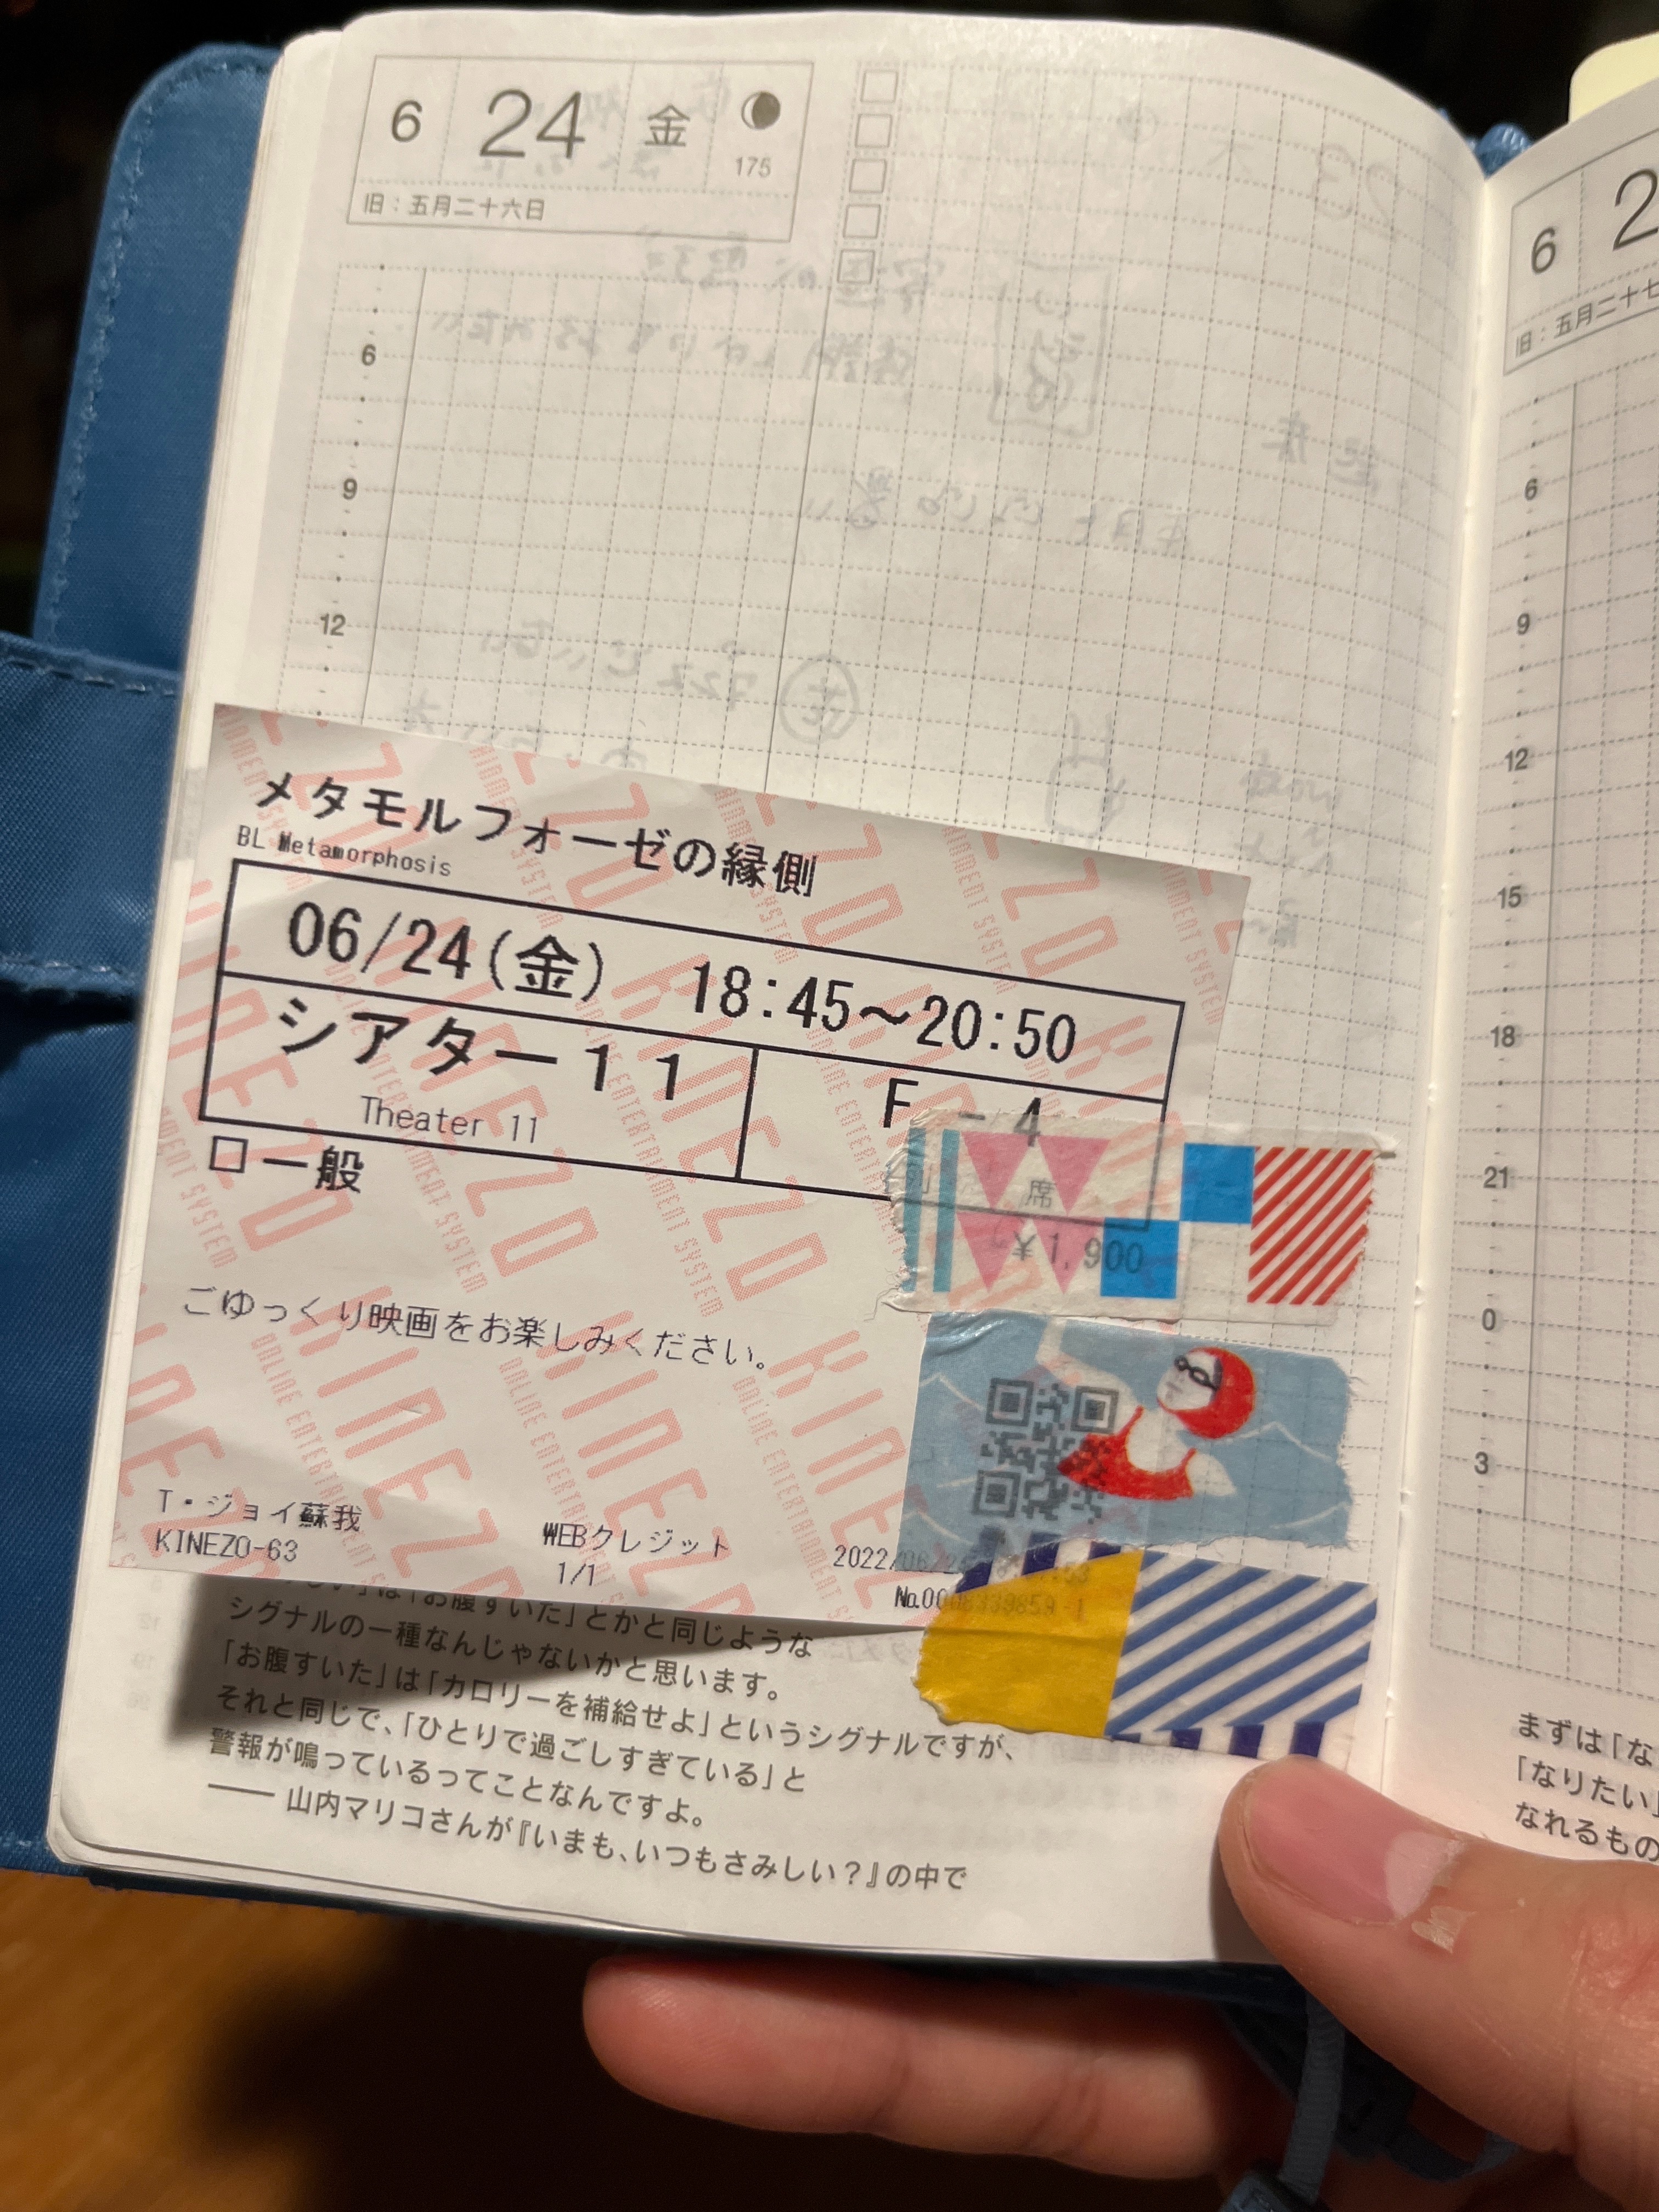 6 24 金
175
旧：五月二十六日
6
9
12
メタモルフォーゼの縁側
BL Metamorphosis
06/24(金) 18:45～20:50
シアター11
Theater 11
F - 4
列 席
口一般
￥1,900
ごゆっくり映画をお楽しみください。
T・ジョイ蘇我
KINEZO-63
WEBクレジット
1/1
2022/06/2
KINEZO
ONLINE ENTERTAINMENT SYSTEM
い」は「お腹すいた」とかと同じような
シグナルの一種なんじゃないかと思います。
「お腹すいた」は「カロリーを補給せよ」というシグナルですが、
それと同じで、「ひとりで過ごしすぎている」と
警報が鳴っているってことなんですよ。
── 山内マリコさんが『いまも、いつもさみしい？』の中で
6 2
旧：五月二十七
6
9
12
15
18
21
0
3
まずは「な
「なりたい」
なれるもの